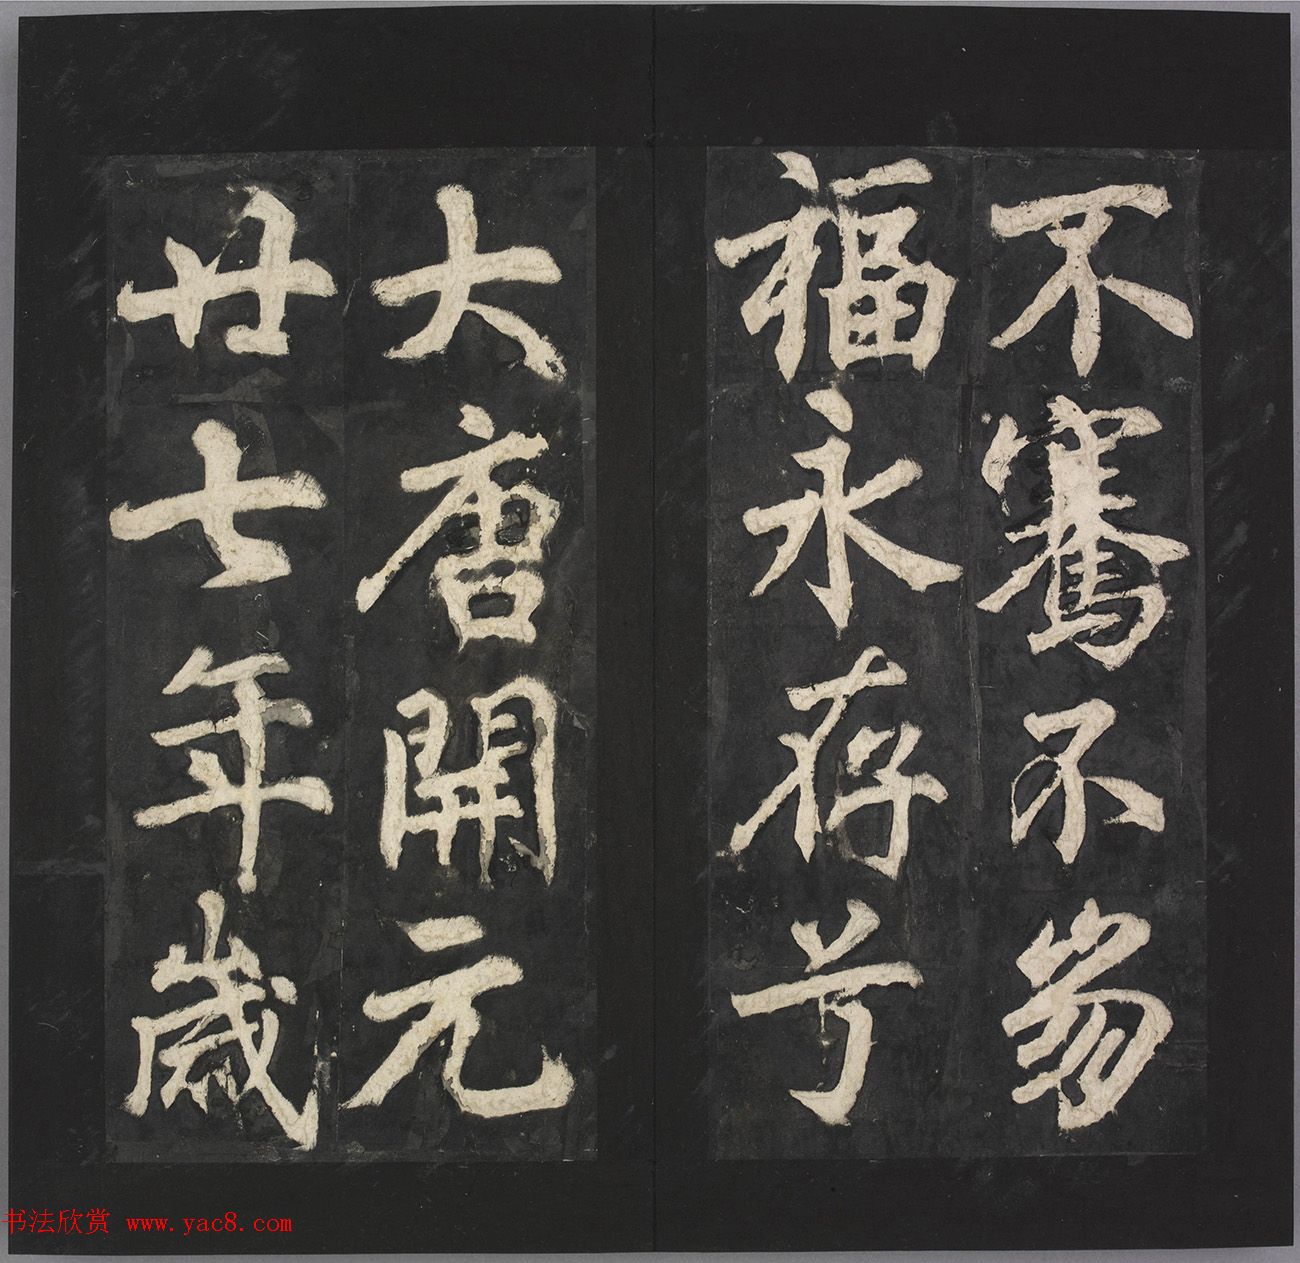 不騫不昜
福永存兮
大唐開元
廿七年歲
书法欣赏 www.yac8.com